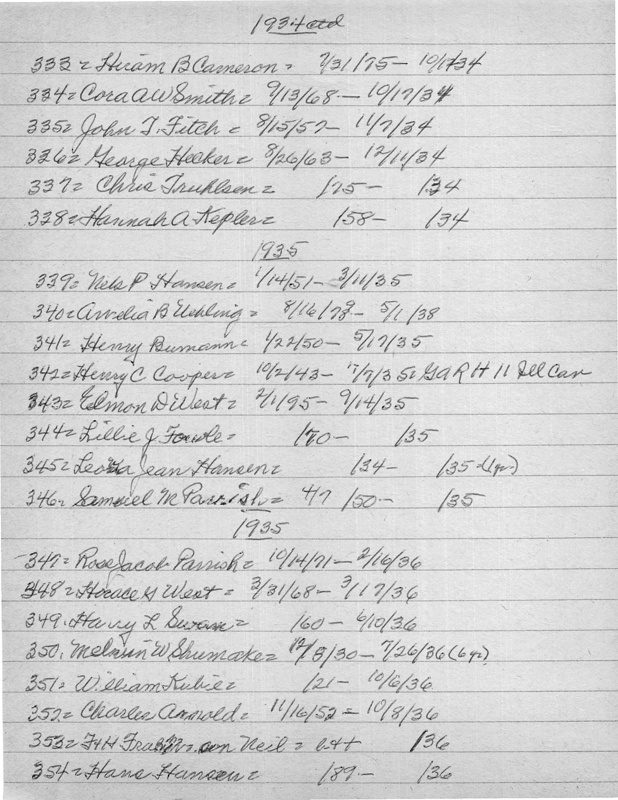 1934 ctd
333 = Hiram B Cameron = 7/31/75 - 10/1/34
334 = Cora A W Smith = 9/13/68 - 10/17/34
335 = John T. Fitch = 8/15/57 - 11/7/34
336 = George Hecker = 8/26/63 - 12/11/34
337 = Chris Truhlsen = /75 - /34
338 = Hannah A Kepler = /58 - /34
1935
339 = Nels P Hansen = 1/14/51 - 3/11/35
340 = Amelia B Uehling = 8/16/79 - 5/1/38
341 = Henry Bumann = 4/22/50 - 5/17/35
342 = Henry C Cooper = 10/2/43 - 7/35 = GAR H 11 Ill Cav
343 = Elmon D West = 2/1/95 - 9/14/35
344 = Lillie J Fowle = /70 - /35
345 = Jean Hansen = /34 - /35 - (1 yr)
346 = Samuel M Parrish = 4/7 /50 - /35
1935
347 = Rose Jacob Parrish = 10/14/71 - 2/16/36
348 = Horace G West = 3/31/68 - 3/17/36
349. Harry L Swan = /60 - 6/10/36
350. Melvin W Shumake = 12/8/30 - 7/26/36 (6 yr)
351 = William Kubie = /21 - 10/6/36
352 = Charles Arnold = 11/16/52 = 10/8/36
353 = F H son Neil = /36
354 = Hans Hansen = /89 - /36